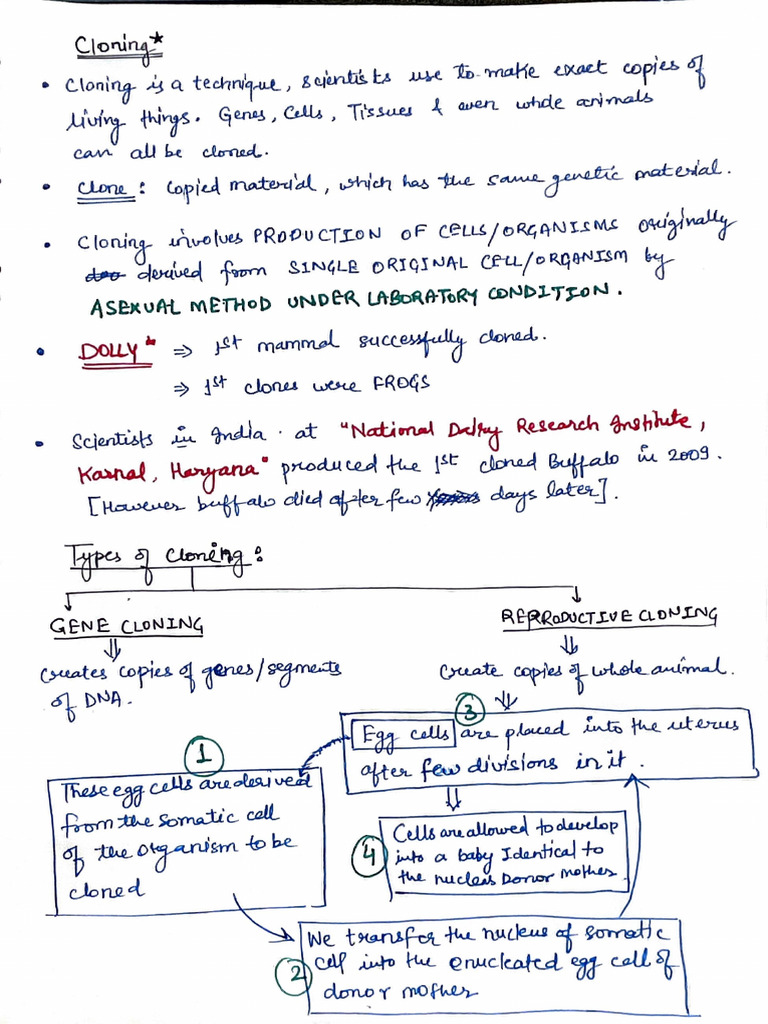 Cloning*
• Cloning is a technique, scientists use to make exact copies of
living things. Genes, Cells, Tissues & even whole animals
can all be cloned.
• Clone: Copied material, which has the same genetic material.
• Cloning involves PRODUCTION OF CELLS/ORGANISMS originally
derived from SINGLE ORIGINAL CELL/ORGANISM by
ASEXUAL METHOD UNDER LABORATORY CONDITION.
• DOLLY* ⇒ 1st mammal successfully cloned.
⇒ 1st clones were FROGS
• Scientists in India. at "National Dairy Research Institute,
Karnal, Haryana" produced the 1st cloned Buffalo in 2009.
[However buffalo died after few days later].
Types of Cloning:
GENE CLONING
REPRODUCTIVE CLONING
Creates copies of genes/segments
of DNA.
Create copies of whole animal.
3
Egg cells are placed into the uterus
after few divisions in it.
1
These egg cells are derived
from the somatic cell
of the organism to be
cloned
4
Cells are allowed to develop
into a baby Identical to
the nucleus Donor Mother.
2
We transfer the nucleus of somatic
cell into the enucleated egg cell of
donor mother